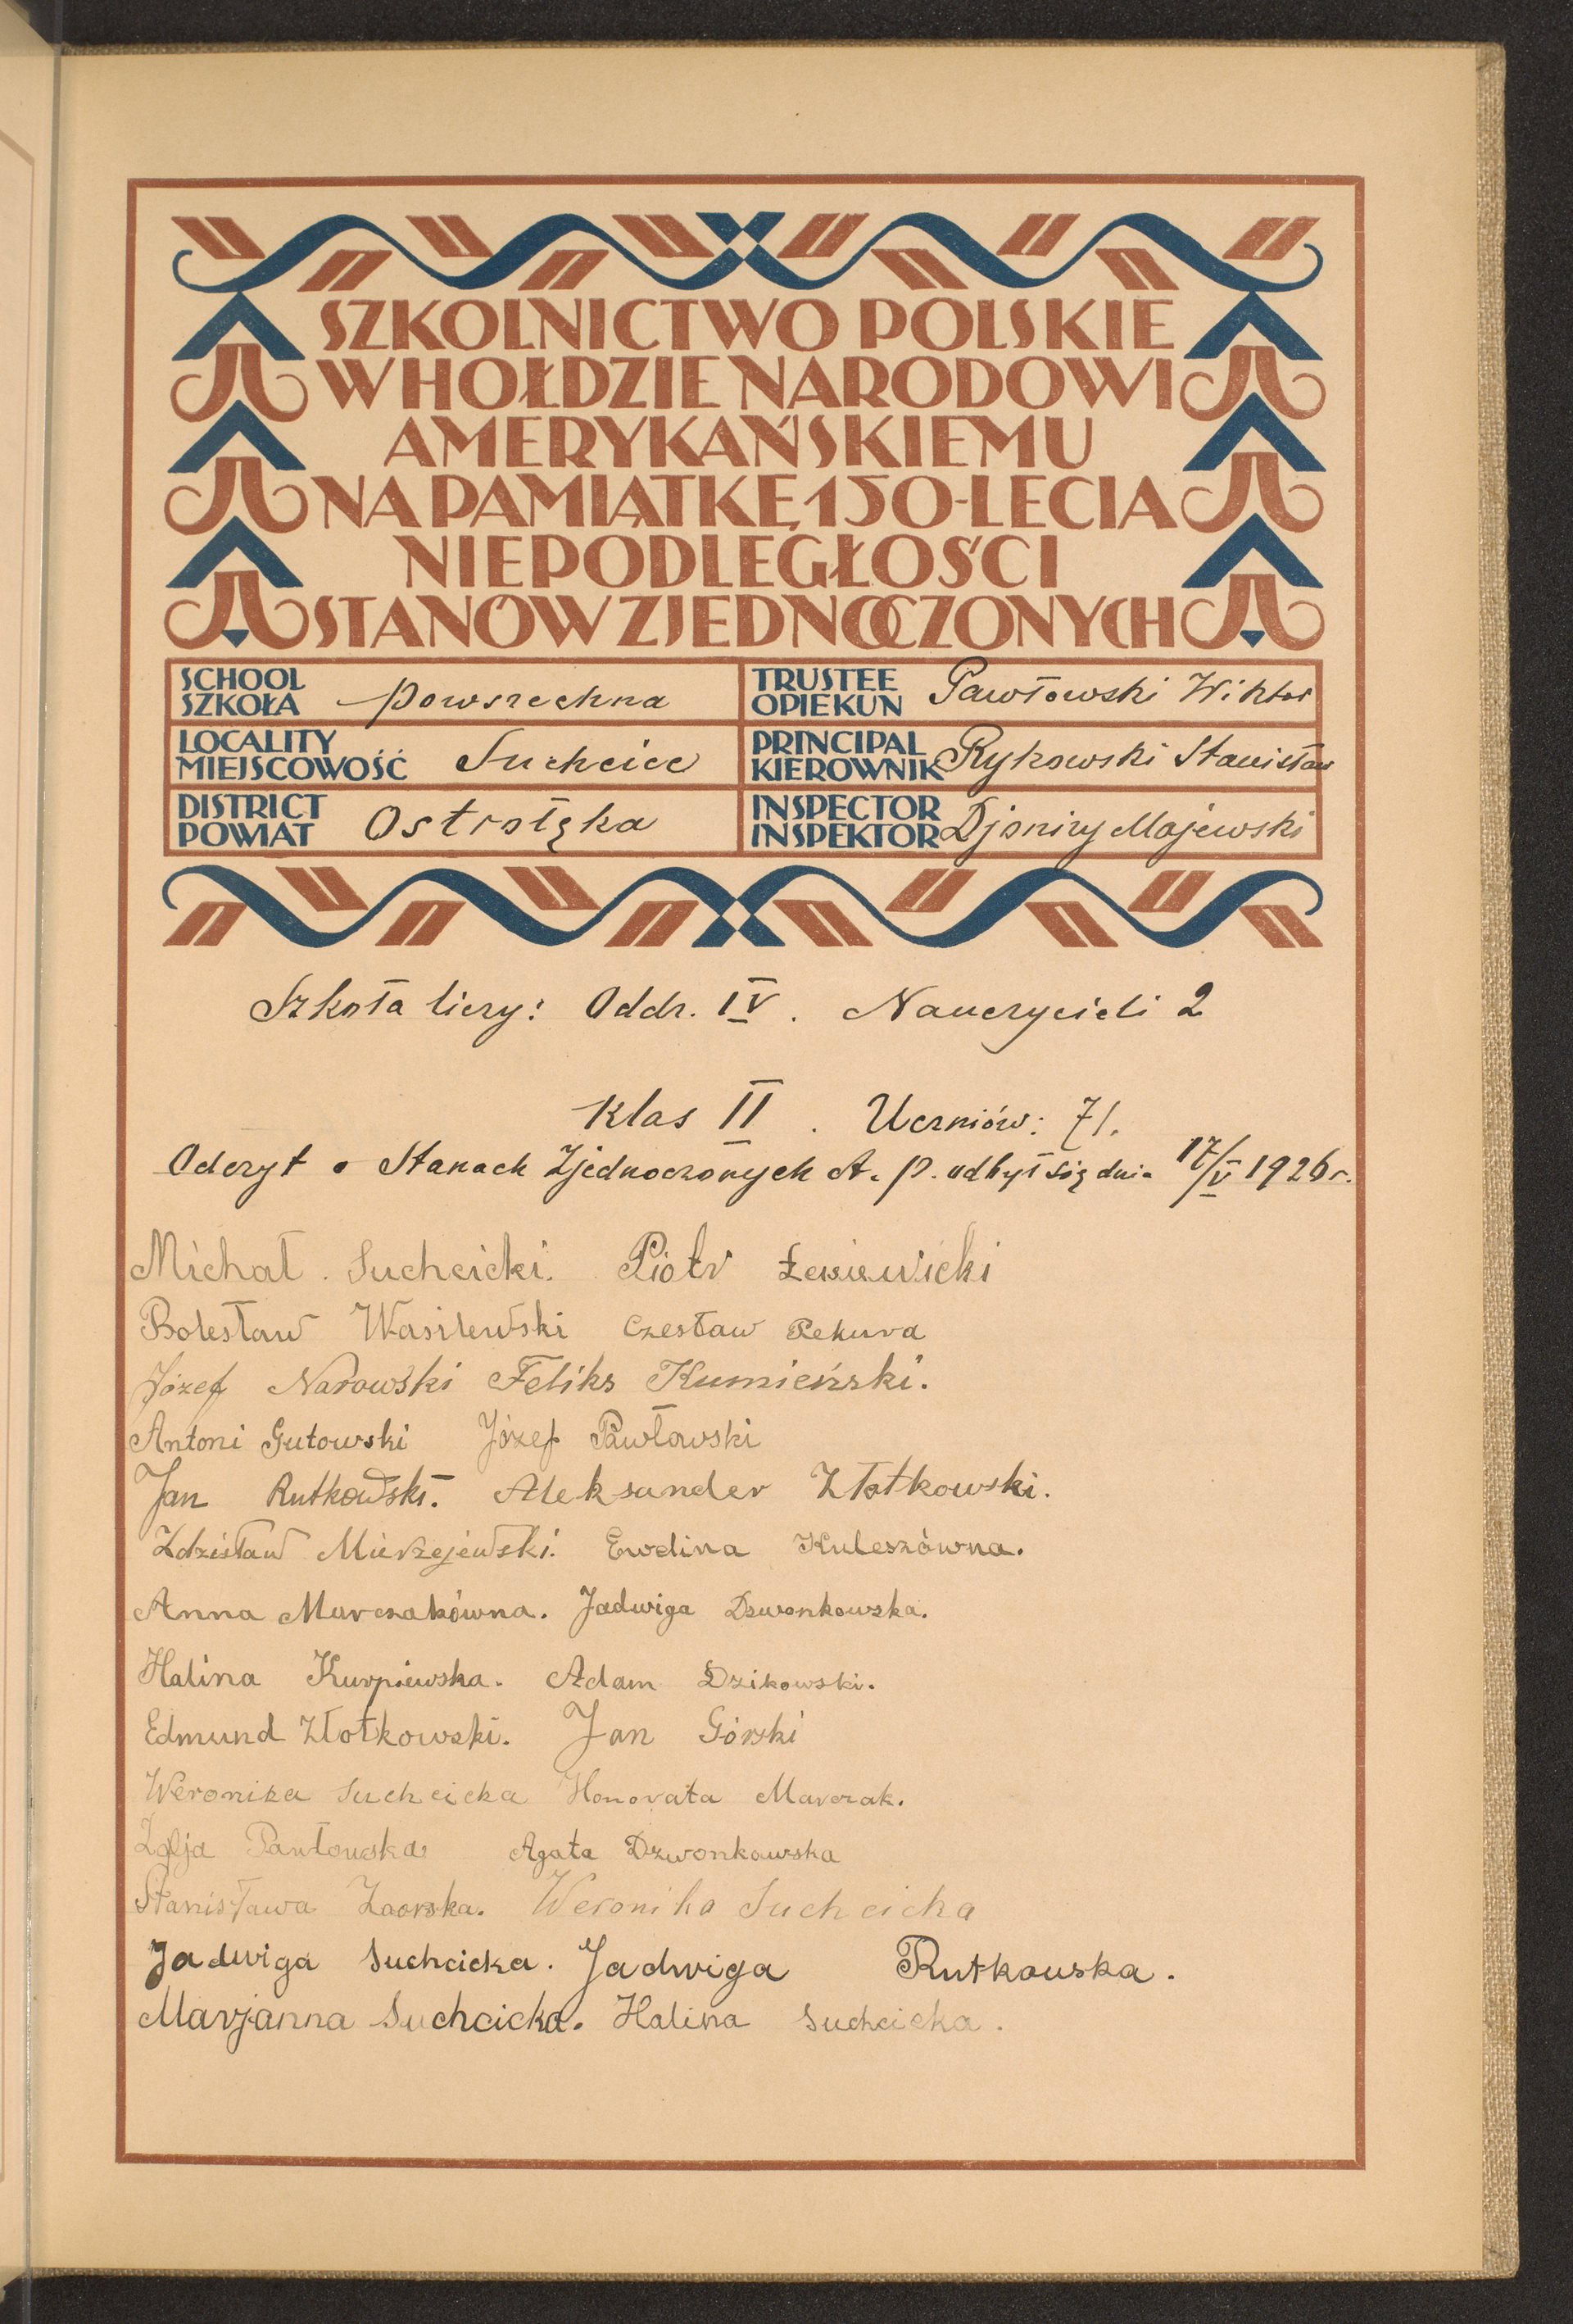 SZKOLNICTWO POLSKIE
W HOŁDZIE NARODOWI
AMERYKAŃSKIEMU
NA PAMIĄTKĘ 150-LECIA
NIEPODLEGŁOŚCI
STANÓW ZJEDNOCZONYCH
SCHOOL
SZKOŁA powszechna
TRUSTEE
OPIEKUN Pawłowski Wiktor
LOCALITY
MIEJSCOWOŚĆ Suchcice
PRINCIPAL
KIEROWNIK Rykowski Stanisław
DISTRICT
POWIAT Ostrołęka
INSPECTOR
INSPEKTOR Djonizy Majewski
Szkoła liczy: Oddz. IV. Nauczycieli 2
Klas II. Uczniów: 71.
Odczyt o Stanach Zjednoczonych A. P. odbył się dnia 17/V 1926 r.
Michał Suchcicki. Piotr
Bolesław Wasilewski Czesław Pekura
Józef Narowski Feliks Kumieński.
Antoni Gutowski Józef Pawłowski
Jan Rutkowski. Aleksander Złotkowski.
Zdzisław Mierzejewski. Ewelina Kuleszówna.
Anna Marczakówna. Jadwiga Dzwonkowska.
Halina Kurpiewska. Adam Dzikowski.
Edmund Złotkowski. Jan Górski
Weronika Suchcicka Honorata Marczak.
Zofja Pawłowska Agata Dzwonkowska
Stanisława Zaorska. Weronika Suchcicka
Jadwiga Suchcicka. Jadwiga Rutkowska.
Marjanna Suchcicka. Halina Suchcicka.